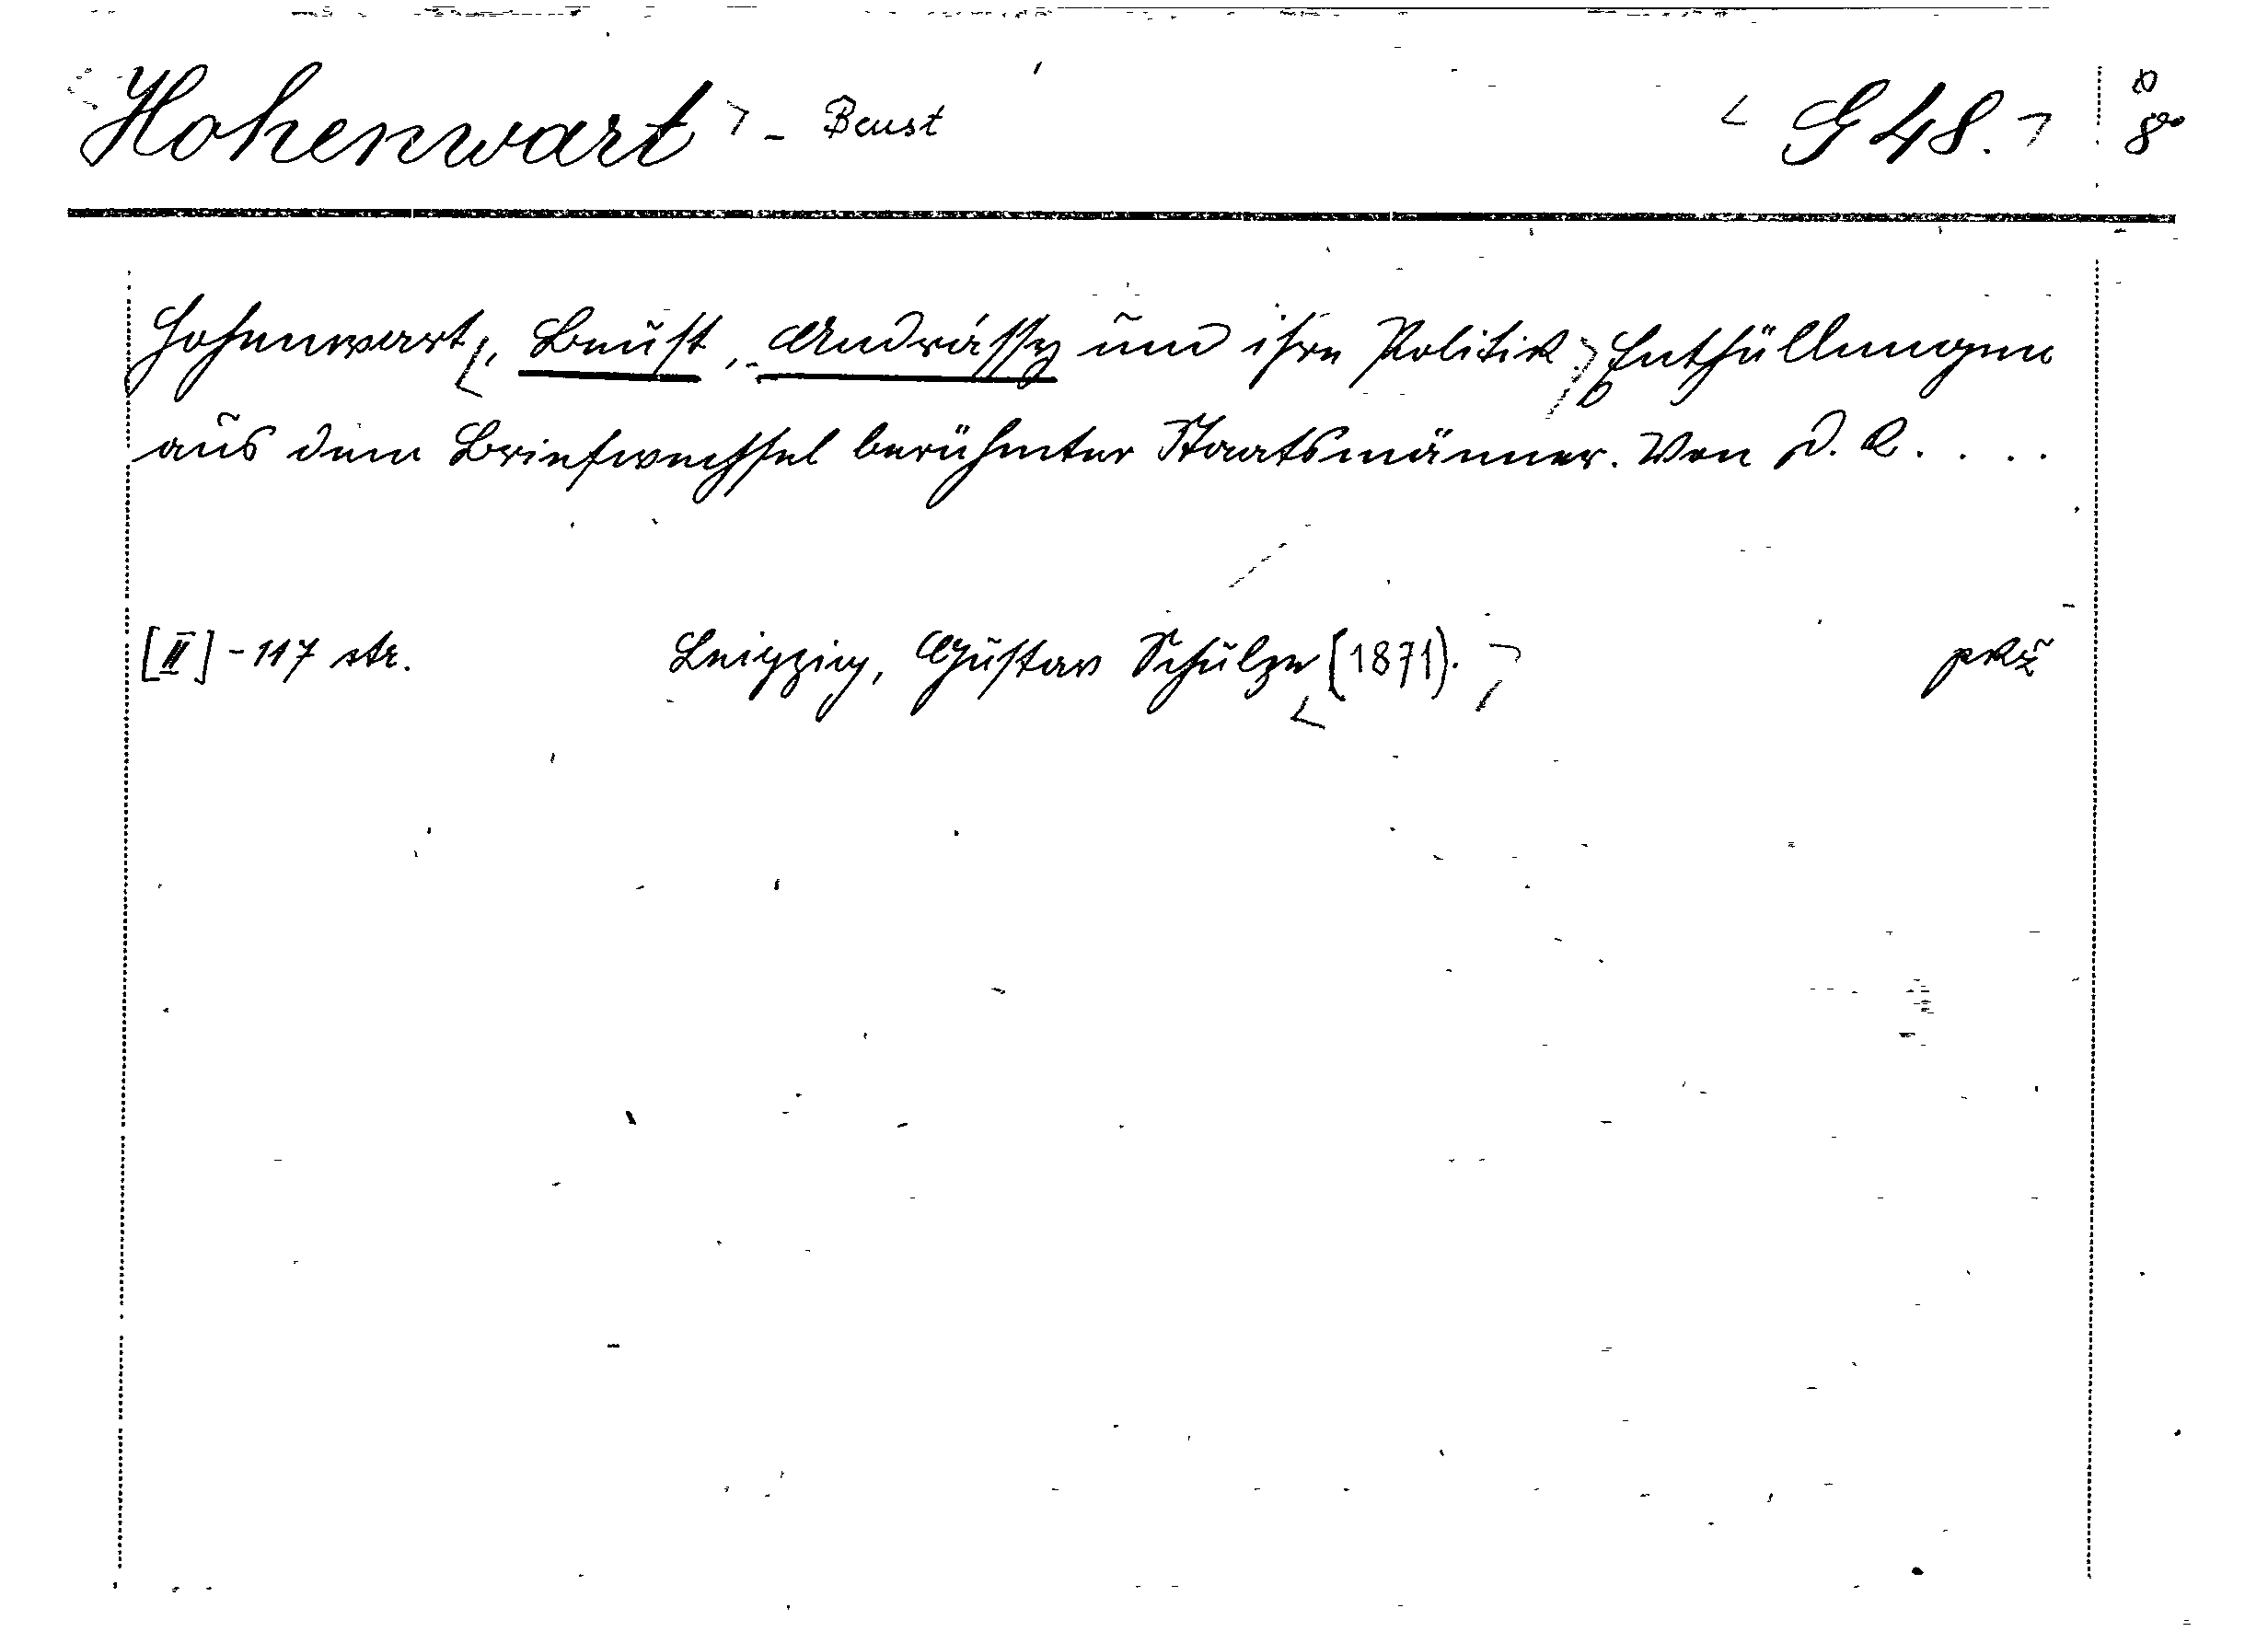 Hohenwart - Beust G 48. 8°
Hohenwart, Beust, Andrássy und ihre Politik. Enthüllungen
aus dem Briefwechsel berühmter Staatsmänner. Von D. R. . . .
[II] - 117 str. Leipzig, Gustav Schulze (1871). pkž